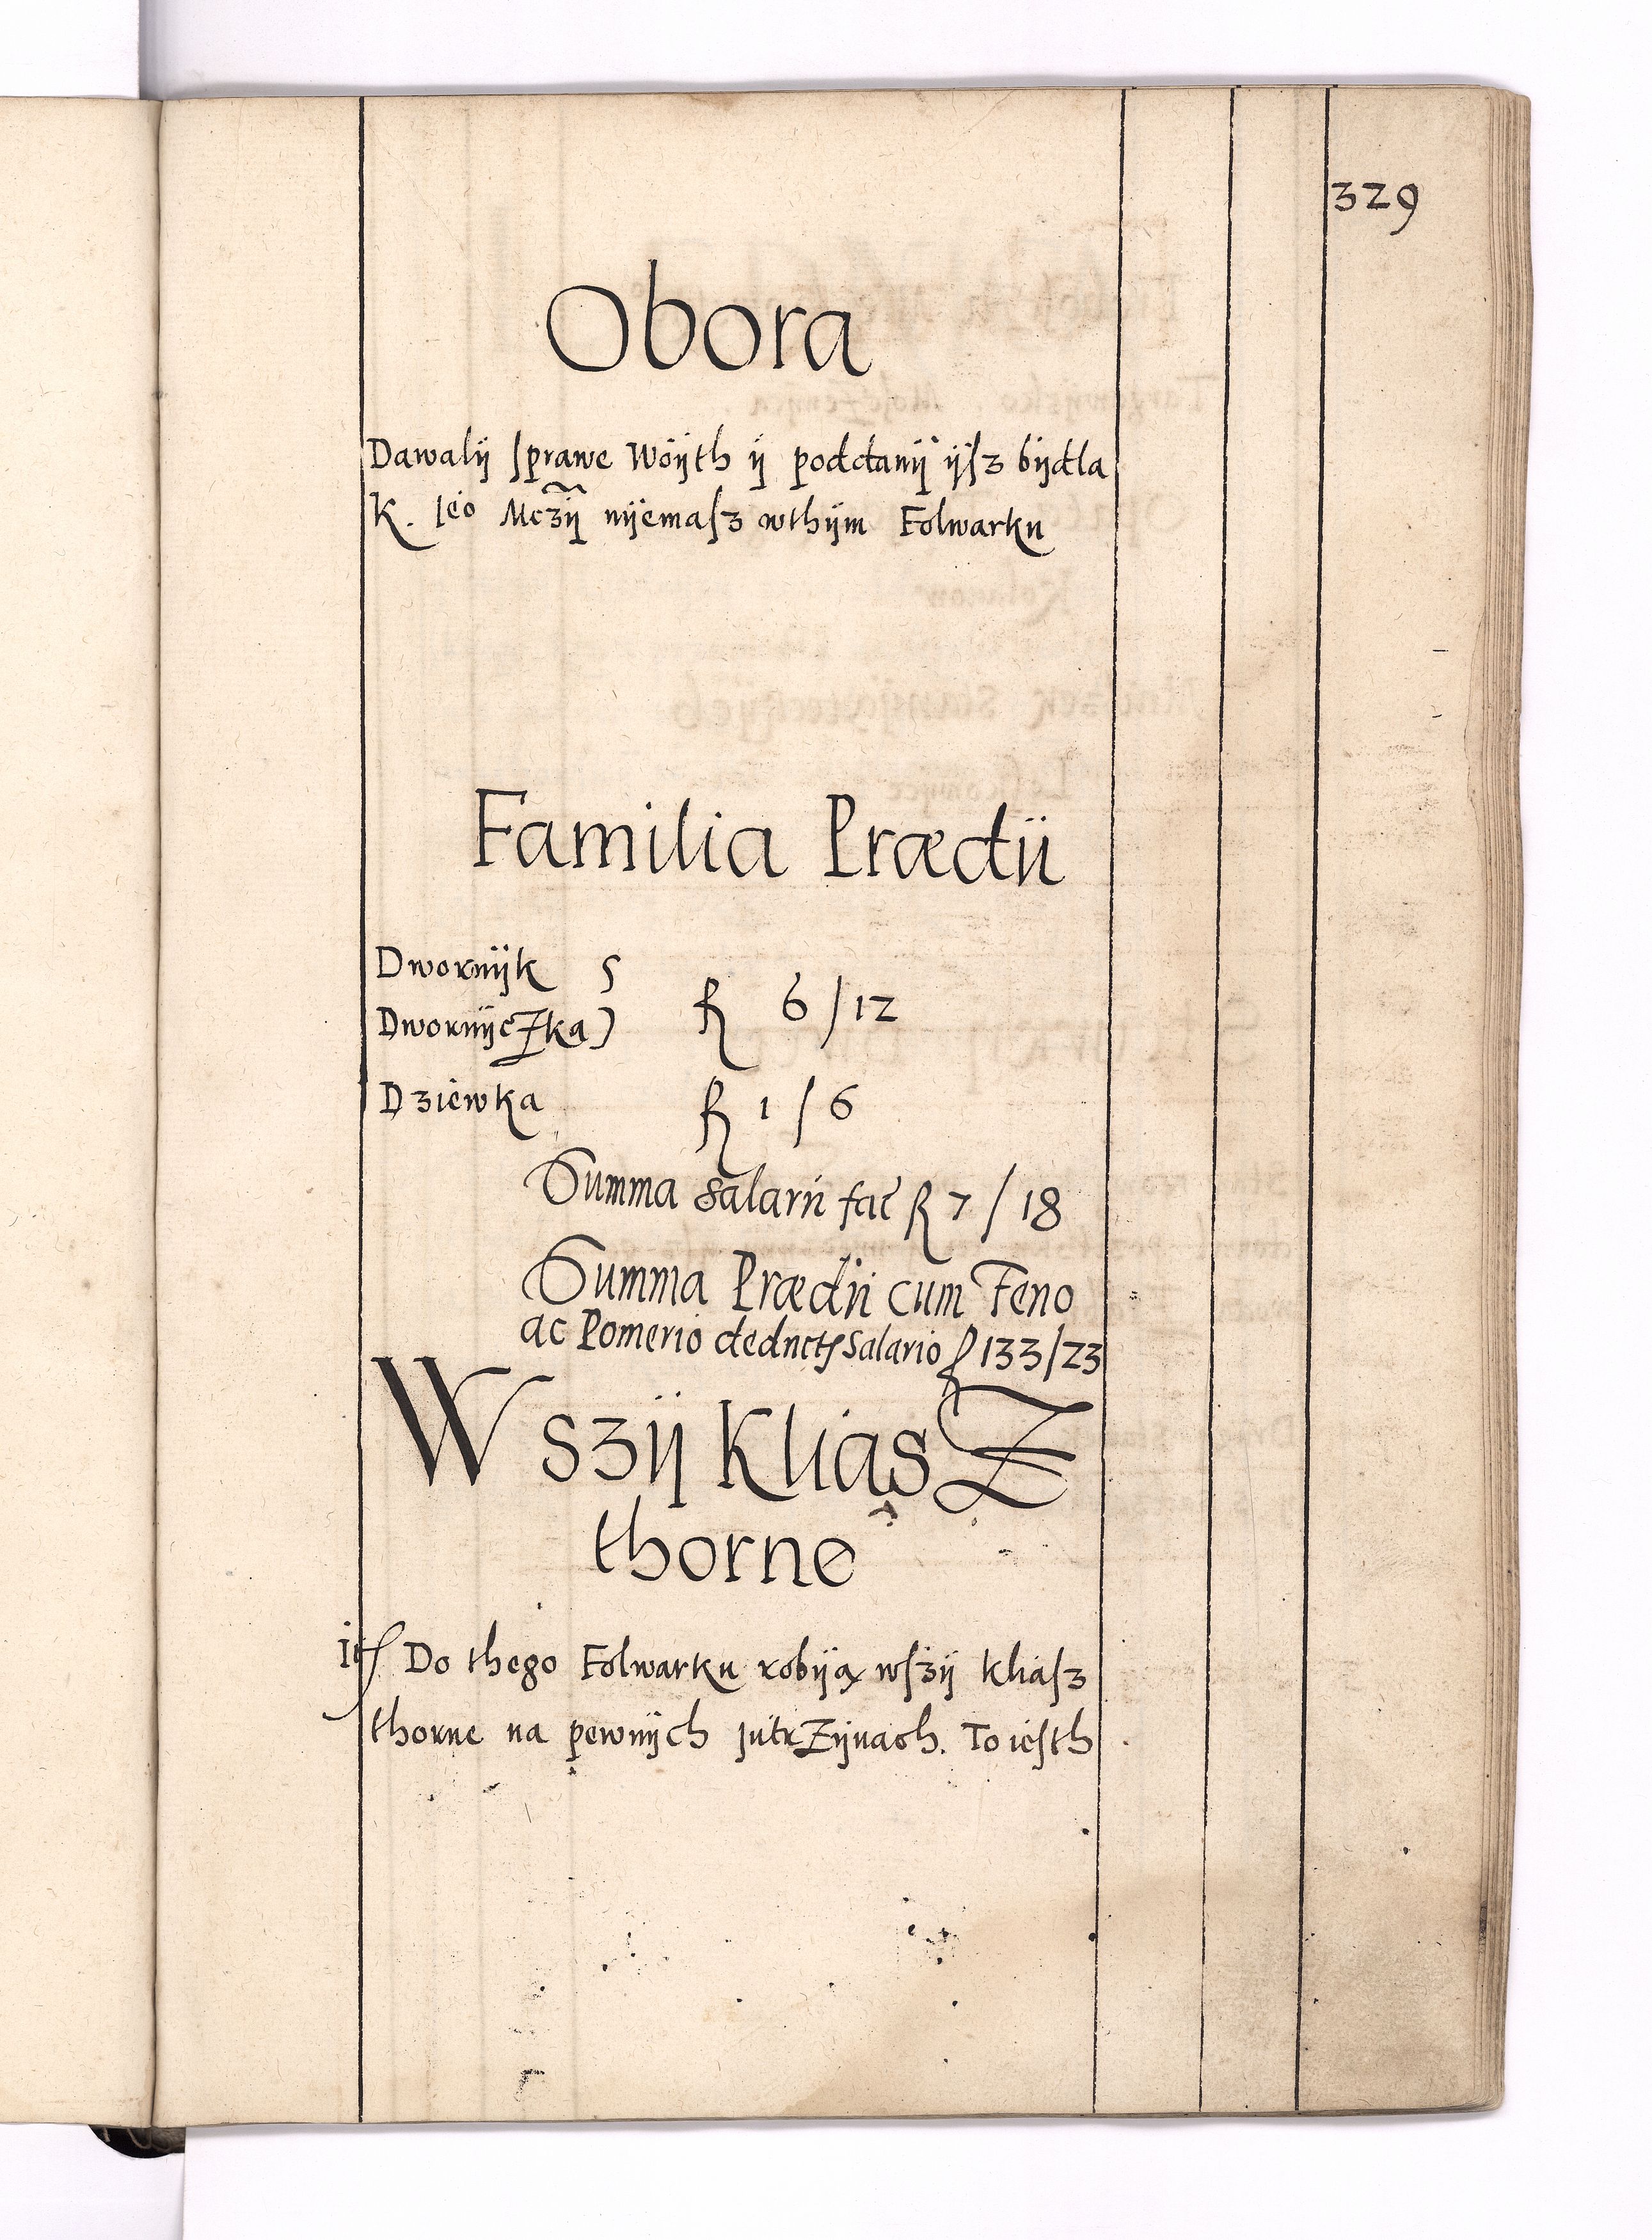 329
Obora
Dawalÿ sprawe Woÿth ÿ poddanÿ ÿsz bÿdla
K. Ieo Mczÿ nÿemasz wthÿm Folwarku
Familia Prædii
Dwornÿk
DwornÿcZka
R 6 / 12
Dziewka R 1 / 6
Summa salarii fac R 7 / 18
Summa Prædii cum Feno
ac Pomerio deducts salario R 133/23
W szÿ KliąsZ
thorne
It Do thego Folwarku robÿą wszÿ Kliasz
thorne na pewnÿch JutrZÿnach. To iesth